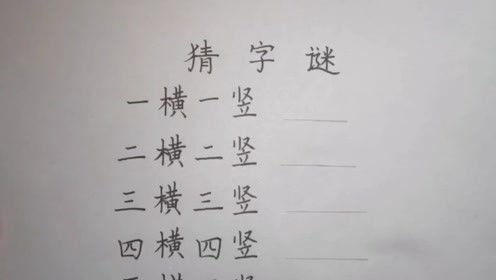 猜字谜
一横一竖
二横二竖
三横三竖
四横四竖